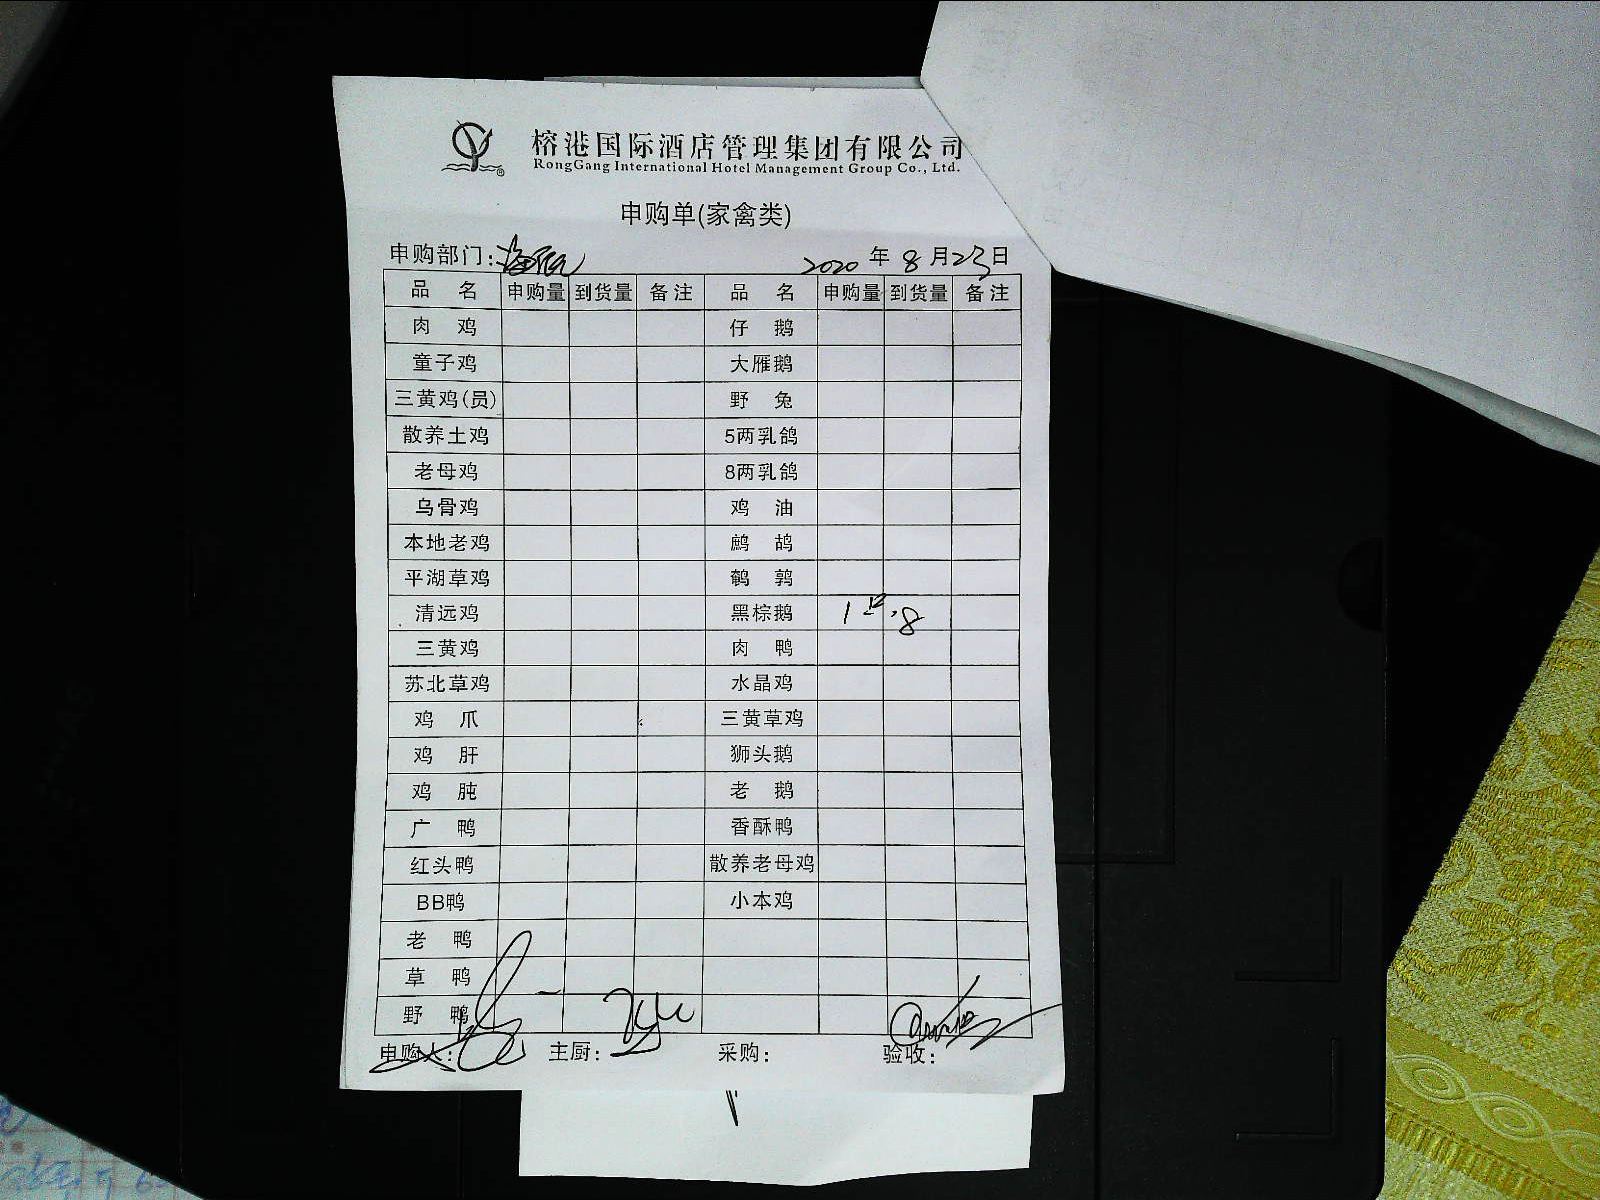 榕港国际酒店管理集团有限公司
RongGang International Hotel Management Group Co., Ltd.
申购单(家禽类)
申购部门: 2020 年 8 月 23 日
品 名 申购量 到货量 备注 品 名 申购量 到货量 备注
肉 鸡 仔 鹅
童子鸡 大雁鹅
三黄鸡(员) 野 兔
散养土鸡 5两乳鸽
老母鸡 8两乳鸽
乌骨鸡 鸡 油
本地老鸡 鹧 鸪
平湖草鸡 鹌 鹑
清远鸡 黑棕鹅 1 8
三黄鸡 肉 鸭
苏北草鸡 水晶鸡
鸡 爪 三黄草鸡
鸡 肝 狮头鹅
鸡 肫 老 鹅
广 鸭 香酥鸭
红头鸭 散养老母鸡
BB鸭 小本鸡
老 鸭
草 鸭
野 鸭
申购人: 主厨: 采购: 验收: